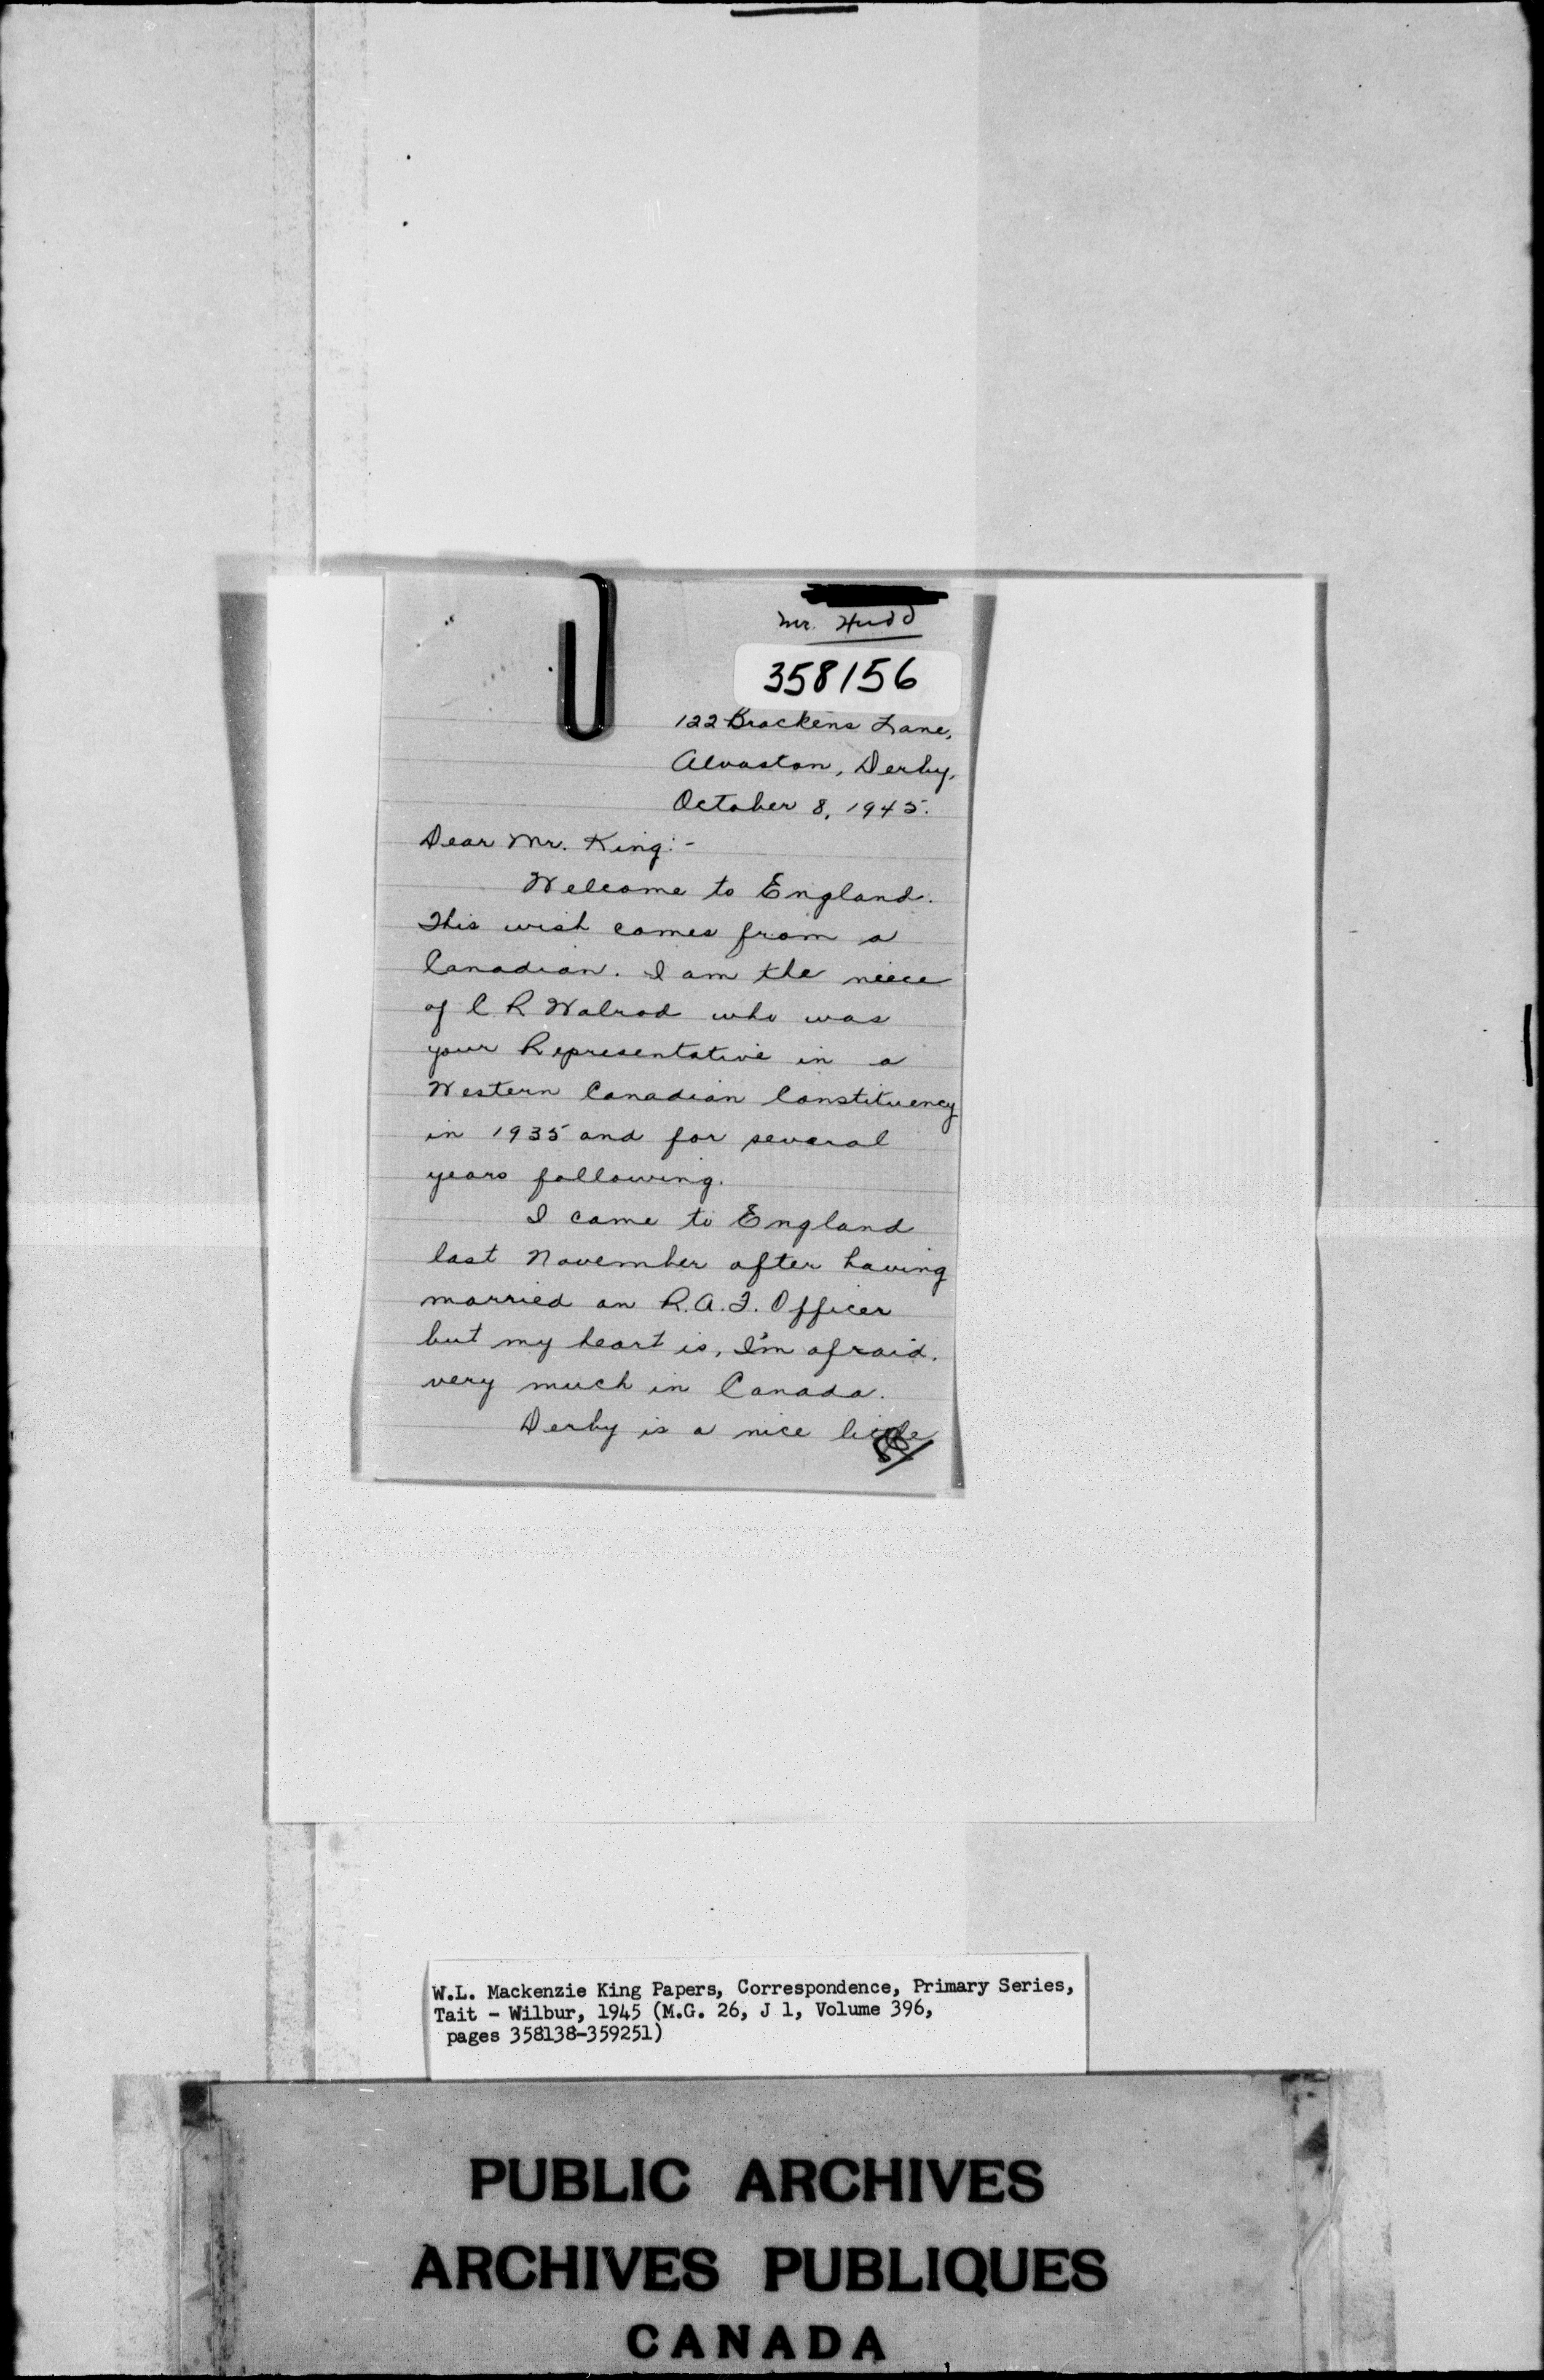 Mr. Hudd
358156
122 Brackens Lane,
Alvaston, Derby,
October 8, 1945.
Dear Mr. King:-
Welcome to England.
This wish comes from a
Canadian. I am the niece
of C R Walrod who was
your Representative in a
Western Canadian Constituency
in 1935 and for several
years following.
I came to England
last November after having
married an R.A.F. Officer
but my heart is, I'm afraid,
very much in Canada.
Derby is a nice little
W.L. Mackenzie King Papers, Correspondence, Primary Series,
Tait - Wilbur, 1945 (M.G. 26, J 1, Volume 396,
pages 358138-359251)
PUBLIC ARCHIVES
ARCHIVES PUBLIQUES
CANADA